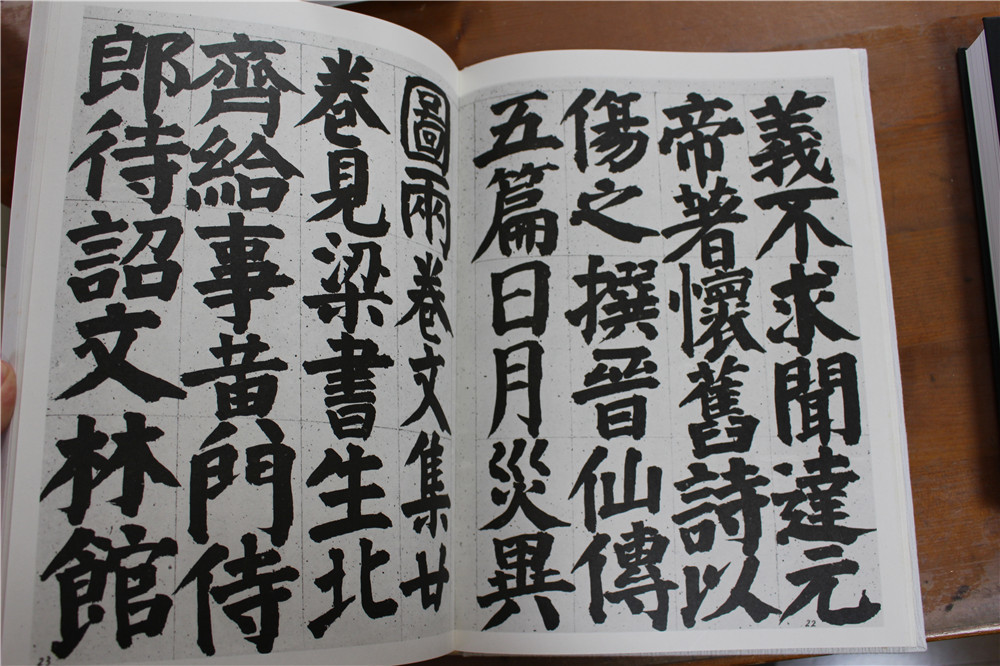 義不求聞達元
帝著懷舊詩以
傷之撰晉仙傳
五篇日月災異
圖兩卷文集廿
卷見梁書生北
齊給事黃門侍
郎待詔文林館
22
23